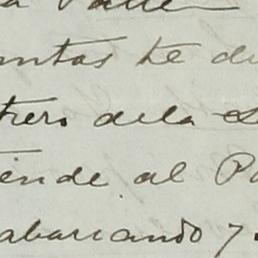 a Valle
untas te di
trero dela
iende al Pa
abarcando y